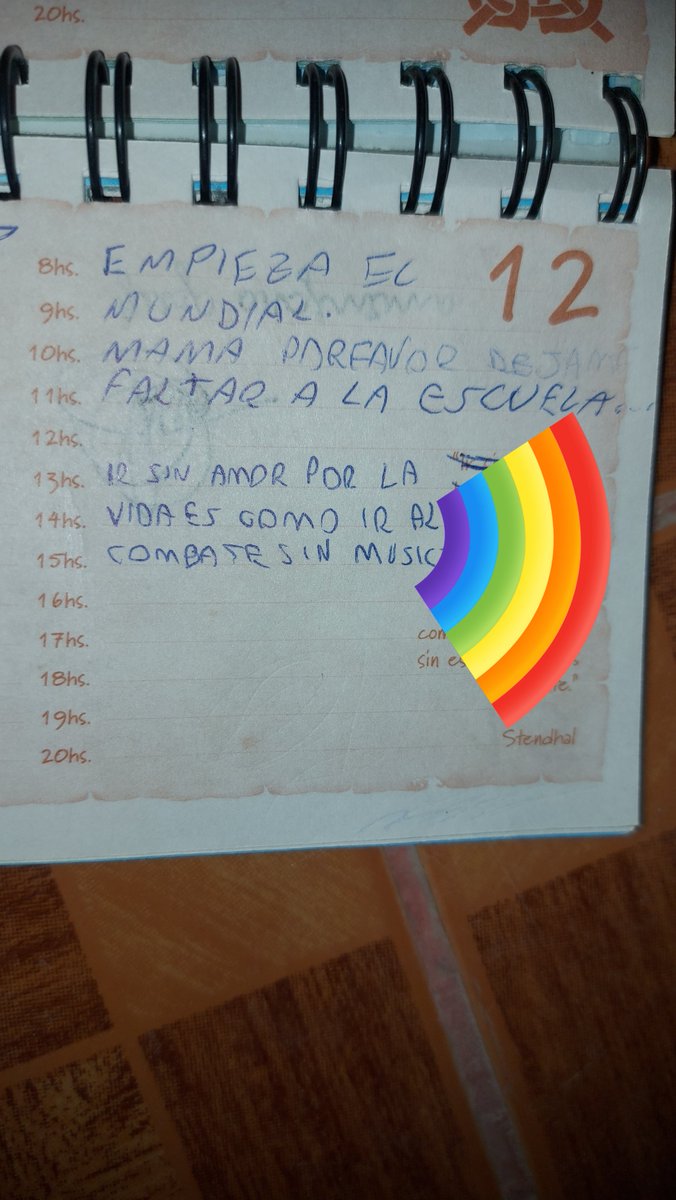 20hs.
12
8hs. EMPIEZA EL
9hs. MUNDIAL.
10hs. MAMA PORFAVOR DEJAME
11hs. FALTAR A LA ESCUELA...
12hs.
13hs. IR SIN AMOR POR LA
14hs. VIDA ES COMO IR AL
15hs. COMBATE SIN MUSIC
16hs.
17hs.
18hs.
19hs.
20hs.
com
sin es
te."
Stendhal